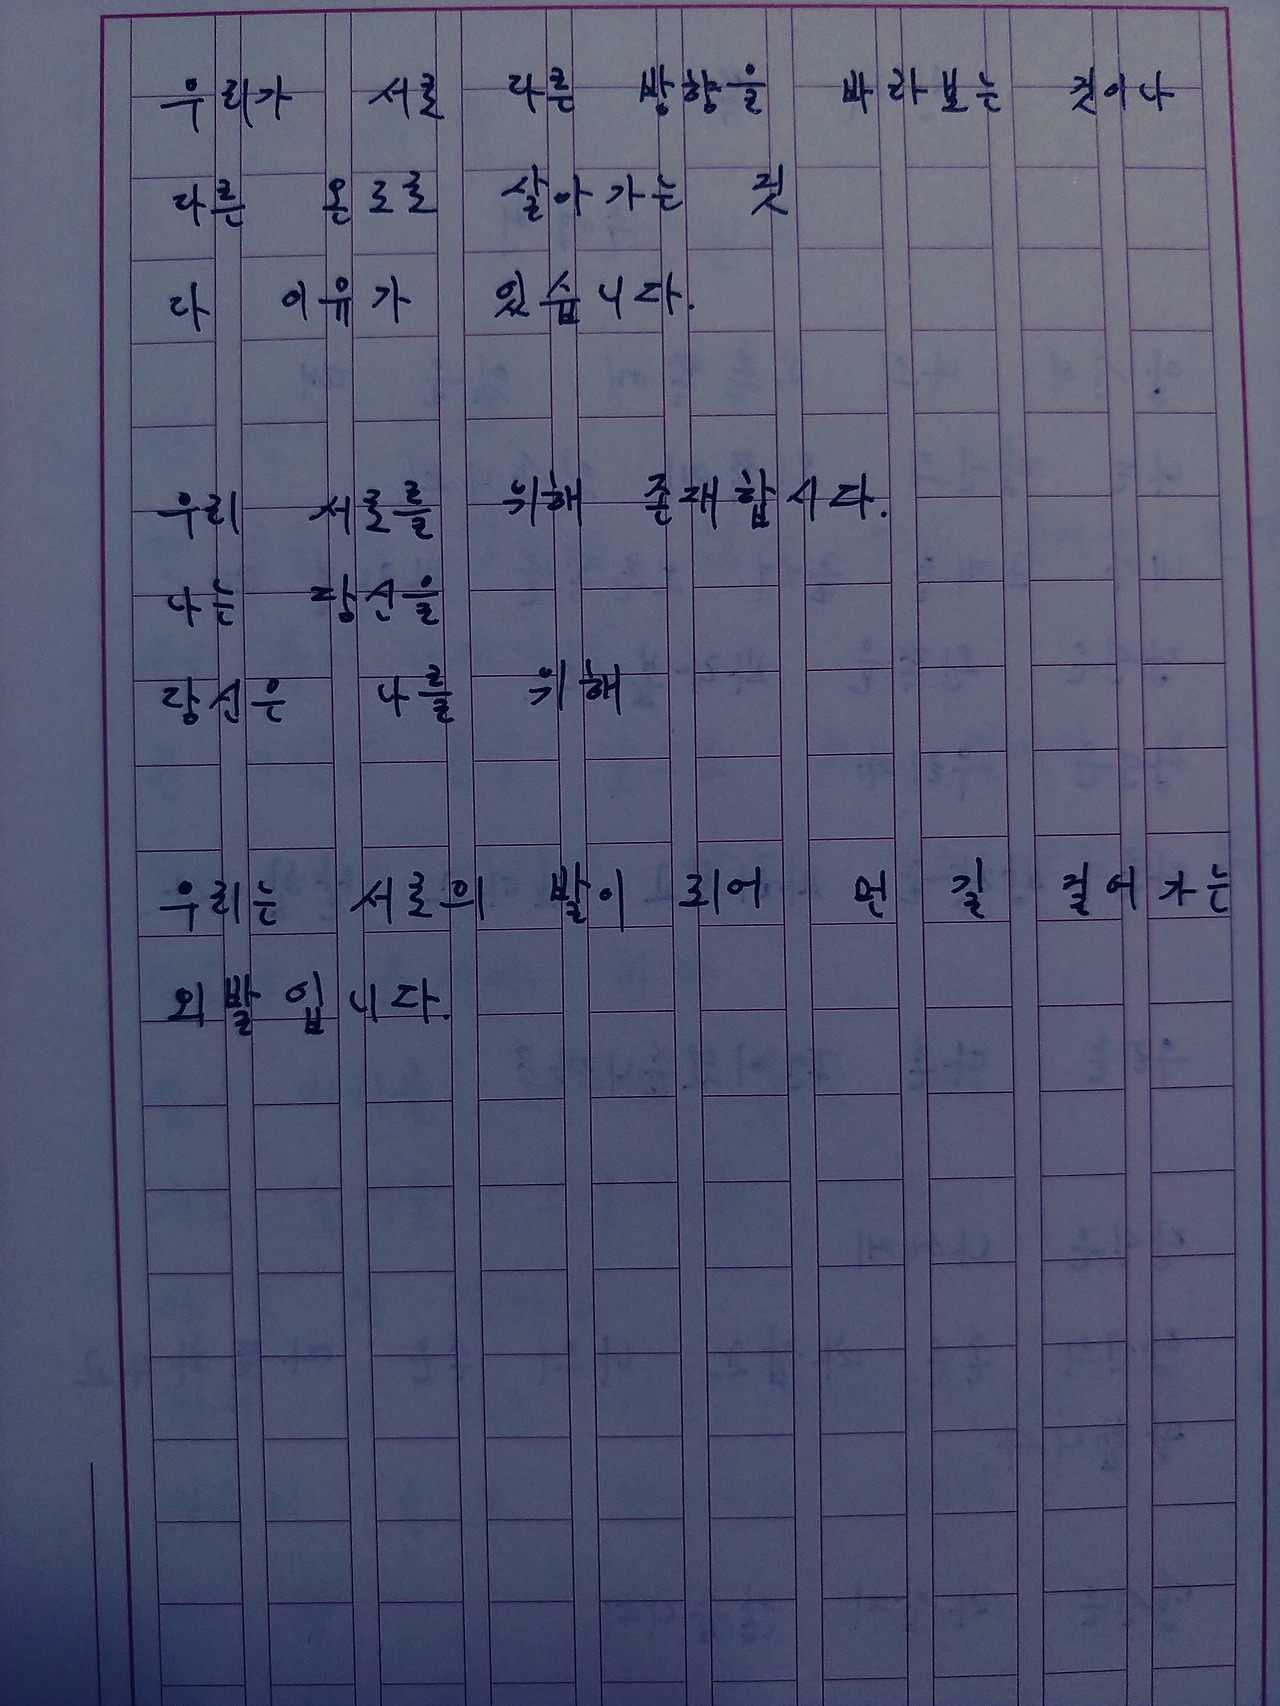 우리가 서로 다른 방향을 바라보는 것이나
다른 온도로 살아가는 것
다 이유가 있습니다.
우리 서로를 위해 존재합시다.
나는 당신을
당신은 나를 위해
우리는 서로의 발이 되어 먼 길 걸어가는
외발입니다.